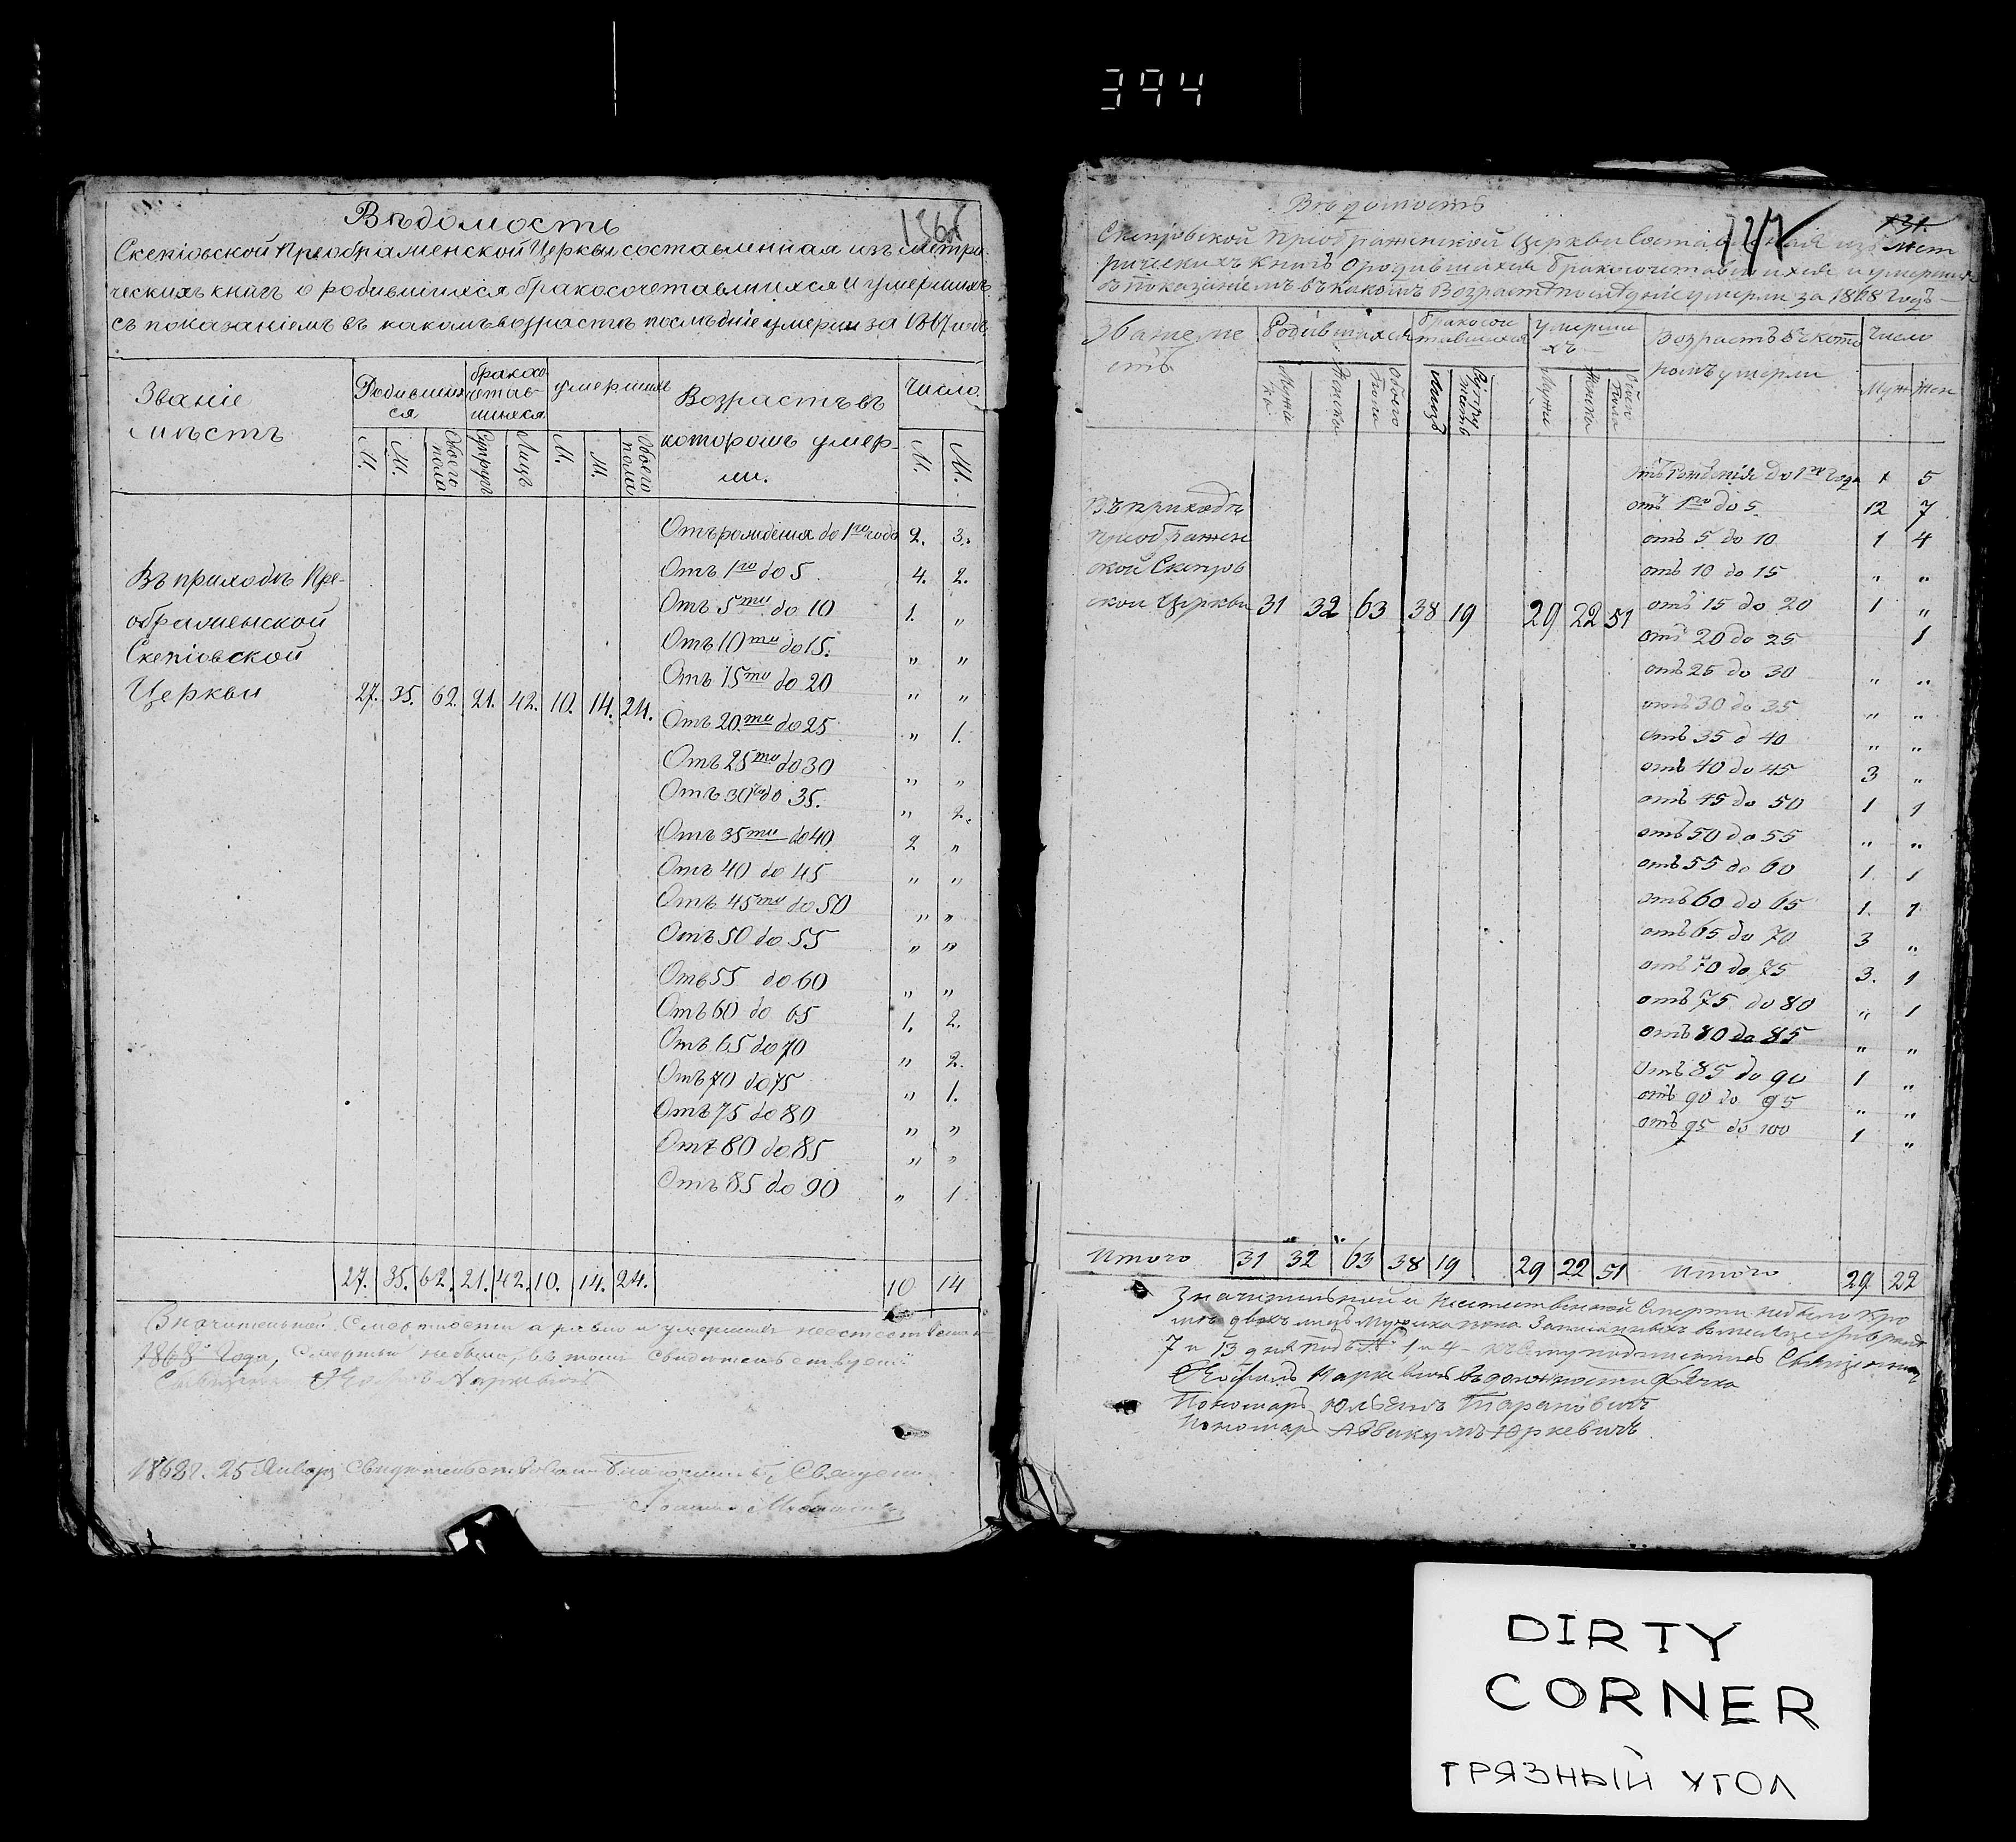 394
Вѣдомость
Скепіовской Преображенской Церкви составленная изъ метри-
ческихъ книгъ о родившихся бракосочетавшихся и умершихъ
съ показаніемъ въ какомъ возрастѣ послѣдніе умерли за 1867 годъ.
Званіе мѣстъ
Родившихся
бракосочетавшихся
умершихъ
Возрастъ въ которомъ умерли.
Число
М. Ж. Обоего пола Супругъ Лицъ М. Ж. Обоего пола М. Ж.
Отъ рожденія до 1го года 2. 3.
Отъ 1го до 5. 4. 2.
Отъ 5ти до 10 1. „
Отъ 10ти до 15. „ „
Отъ 15ти до 20 „ „
Отъ 20ти до 25 „ 1.
Отъ 25ти до 30 „ „
Отъ 30 до 35. „ 2.
Отъ 35ти до 40. 2 „
Отъ 40 до 45 „ „
Отъ 45ти до 50 „ „
Отъ 50 до 55 „ „
Отъ 55 до 60 „ „
Отъ 60 до 65 1. 2.
Отъ 65 до 70 „ 2.
Отъ 70 до 75 „ 1.
Отъ 75 до 80 „ „
Отъ 80 до 85 „ „
Отъ 85 до 90 „ 1
Въ приходѣ Пре-
ображенской
Скепіовской
Церкви 27. 35. 62. 21. 42. 10. 14. 24.
27. 35. 62. 21. 42. 10. 14. 24. 10 14
Значительной смертности а равно и умершихъ неестественн
1868 года, смертью небыло, въ томъ свидетельствуетъ
1868 г. 25 Января Свидетельствовалъ Благочинный, Священ
Вѣдомость
131.
Скепіовской Преображенской Церкви Составленная изъ Мет
рическихъ Книгъ О родившихся Бракосочетавшихся и умершихъ
съ показаніемъ въ какомъ Возрастѣ послѣдніе умерли за 1868 годъ
Званіе мѣстъ
Родившихся
Бракосочетавшихся
Умершихъ
Возрастъ въ которомъ умерли
Число
Муж Жен
отъ Рожденія до 1го года 1 5
отъ 1го до 5. 12 7
отъ 5 до 10 1 4
отъ 10 до 15 „ „
отъ 15 до 20 1 „
отъ 20 до 25 1
отъ 25 до 30 „ „
отъ 30 до 35 „ „
отъ 35 д 40 „ „
отъ 40 до 45 3 „
отъ 45 до 50 1 1
отъ 50 до 55 „ „
отъ 55 до 60 1 1
отъ 60 до 65 1. 1
отъ 65 до 70 3 „
отъ 70 до 75 3. 1
отъ 75 до 80 „ 1
отъ 80 до 85 „ „
отъ 85 до 90 1 „
отъ 90 до 95 „ „
отъ 95 до 100 1 „
Въ приходѣ
преображен
ской Скепіов
ской Церкви 31 32 63 38 19 29 22 51
Итого 31 32 63 38 19 29 22 51 Итого 29 22
Значительной и неестественной Смерти небыло кро
мѣ двухъ лицъ мужска пола Записанныхъ въ месяце Феврале
7 и 13 дня подъ № 1 и 4 — къ сему подписались Священникъ
въ должности дьячка
Пономарь Юльянъ Тарановичъ
Пономарь Аввакумъ Юркевичъ
DIRTY
CORNER
ГРЯЗНЫЙ УГОЛ